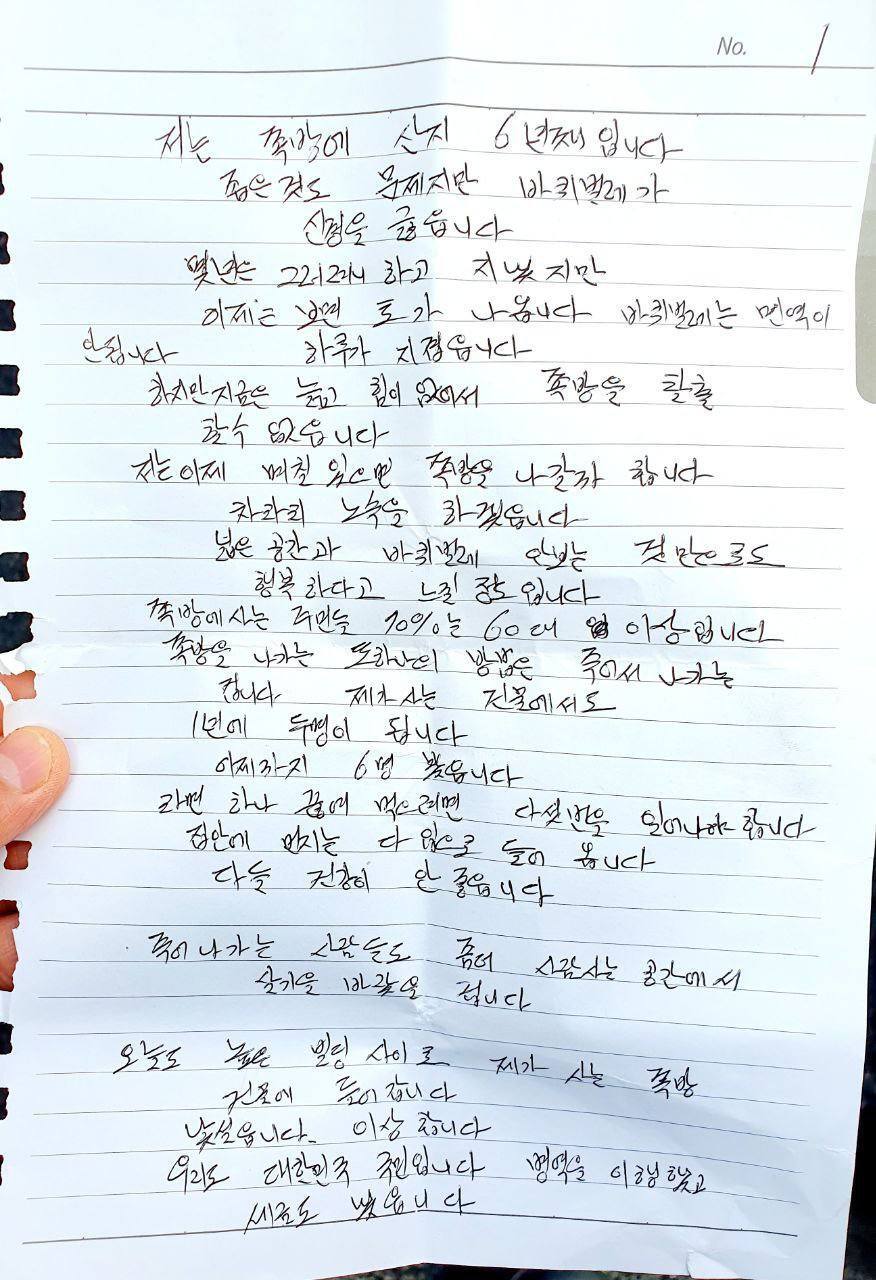 No. 1
저는 쪽방에 산지 6년째입니다
좁은것도 문제지만 바퀴벌레가
신경을 긁읍니다
몇년은 그러려니 하고 지냈지만
이제는 보면 토가 나옵니다 바퀴벌레는 면역이
안됩니다 하루가 지겹읍니다
하지만지금은 늙고 힘이 없어서 쪽방을 탈출
할수 없읍니다
저는이제 며칠 있으면 쪽방을 나갈까 합니다
차라리 노숙을 하겠읍니다
넓은 공간과 바퀴벌레 안보는 것만으로도
행복하다고 느낄 정도입니다
쪽방에사는 주민들 70%는 60대 이상입니다
쪽방을 나가는 또하나의 방법은 죽어서 나가는
겁니다 제가 사는 건물에서도
1년에 두명이 됩니다
어제까지 6명 봤읍니다
라면 하나 끓여 먹으려면 다섯번을 일어나야 합니다
집안에 먼지는 다 입으로 들어 옵니다
다들 건강이 안 좋읍니다
죽어나가는 사람들도 좀더 사람사는 공간에서
살기을 바랐을 겁니다
오늘도 높은 빌딩 사이로 제가 사는 쪽방
건물에 들어갑니다
낯설읍니다. 이상합니다
우리도 대한민국 국민입니다 병역을 이행했고
세금도 냈읍니다